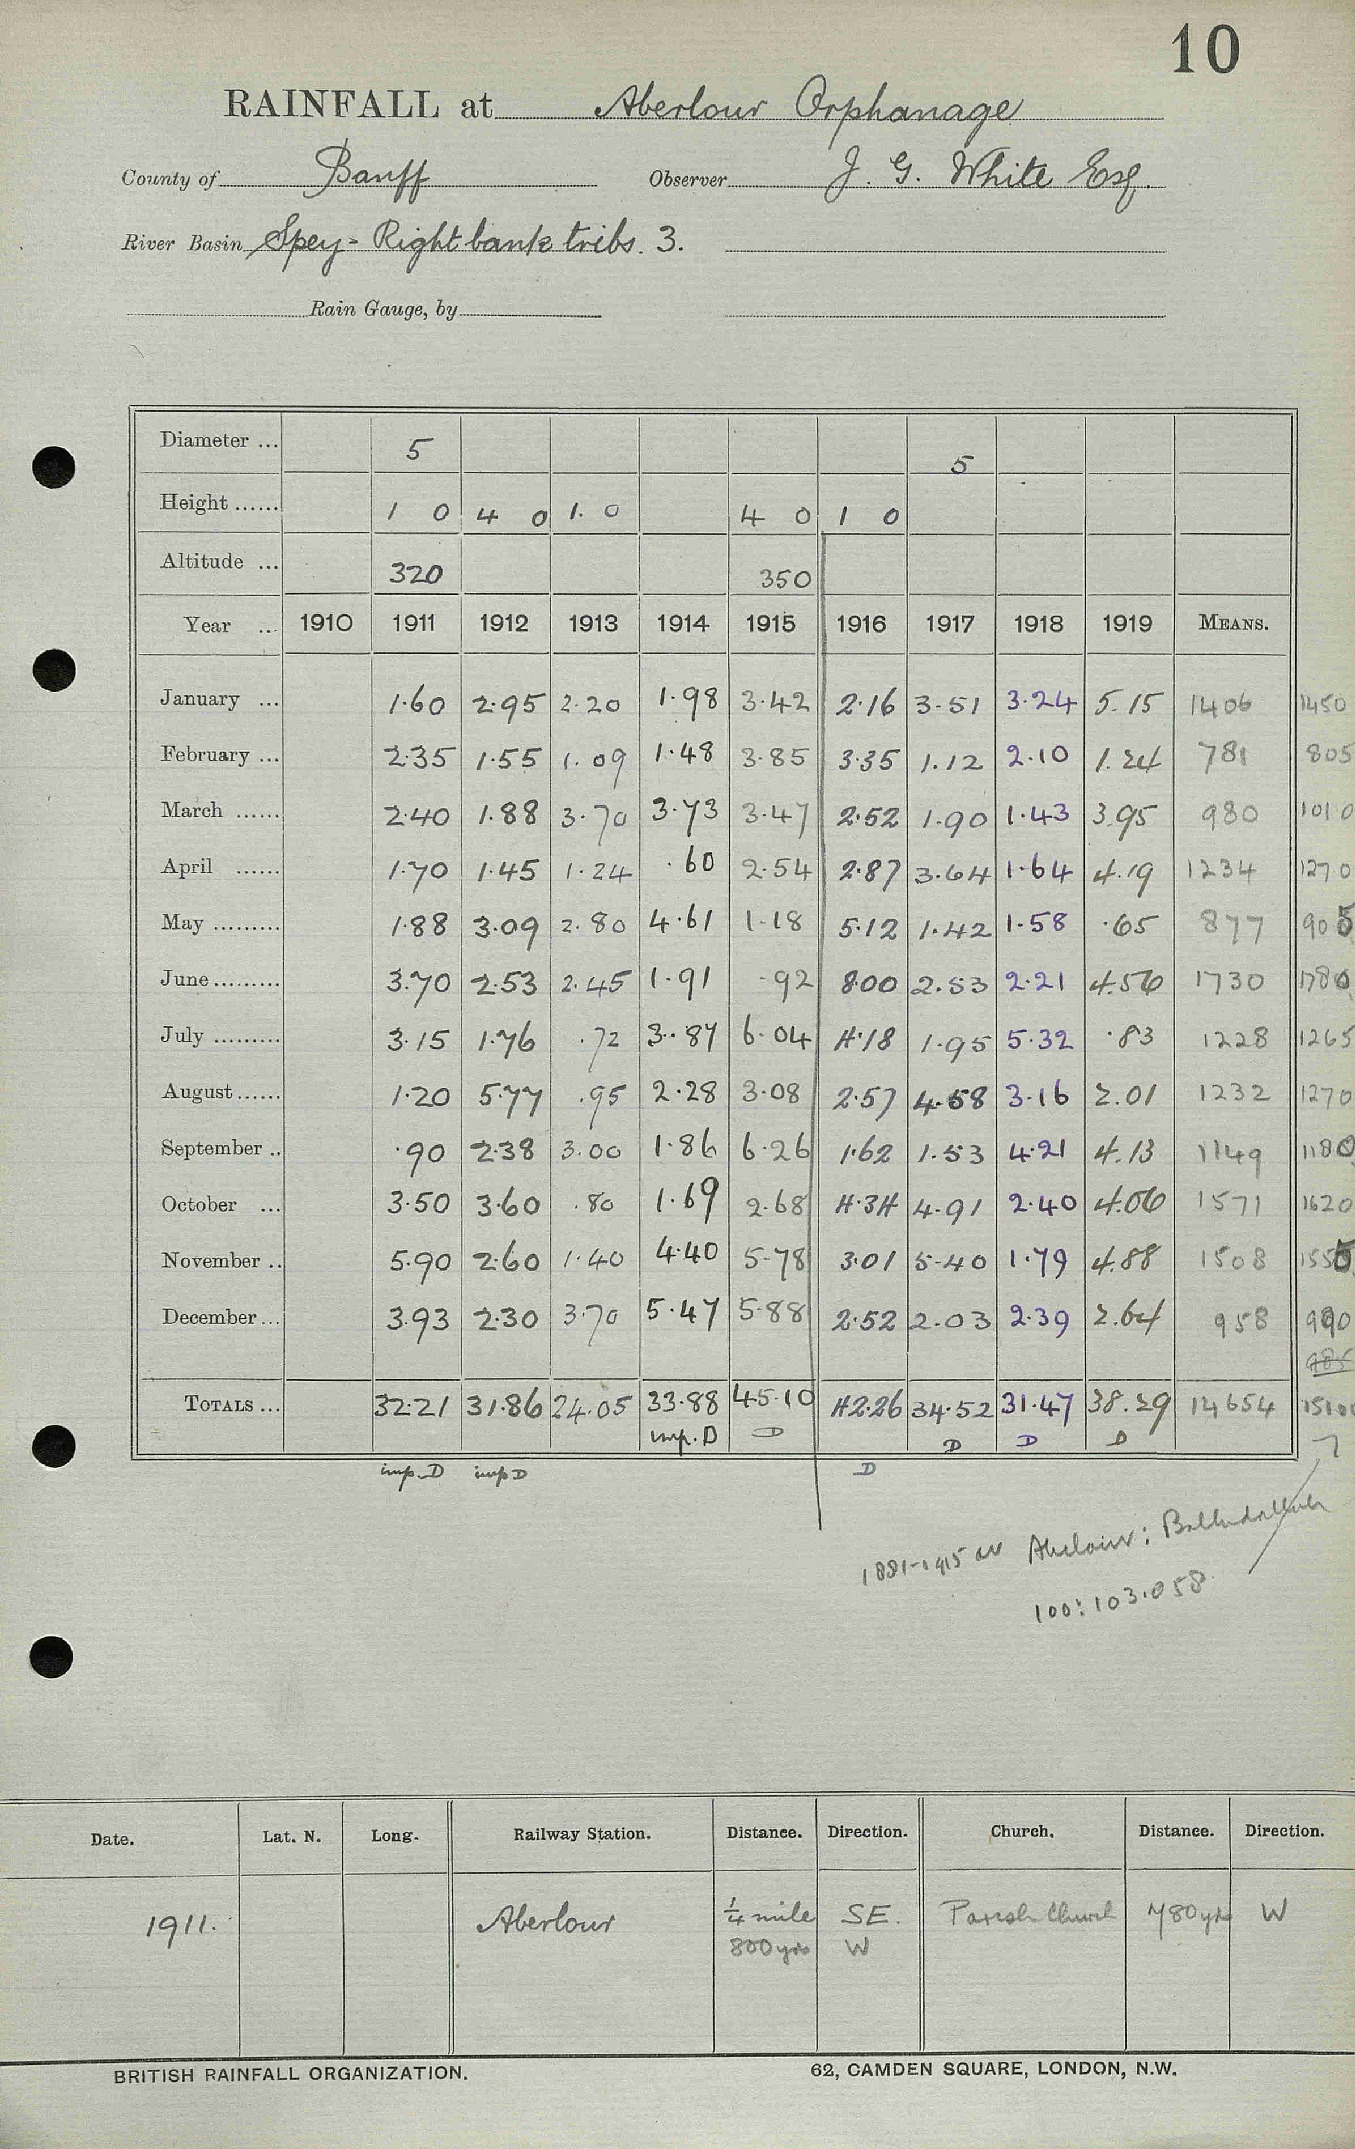 10
RAINFALL at Aberlour Orphanage
County of Banff Observer J. G. White Esq.
River Basin Spey - Right bank tribs. 3.
Rain Gauge, by
Diameter ... 5 5
Height ...... 1 0 4 0 1. 0 4 0 1 0
Altitude ... 320 350
Year ... 1910 1911 1912 1913 1914 1915 1916 1917 1918 1919 MEANS.
January ... 1.60 2.95 2.20 1.98 3.42 2.16 3.51 3.24 5.15 1406 1450
February ... 2.35 1.55 1.09 1.48 3.85 3.35 1.12 2.10 1.24 781 805
March ...... 2.40 1.88 3.70 3.73 3.47 2.52 1.90 1.43 3.95 980 1010
April ...... 1.70 1.45 1.24 .60 2.54 2.87 3.64 1.64 4.19 1234 1270
May ......... 1.88 3.09 2.80 4.61 1.18 5.12 1.42 1.58 .65 877 905
June ......... 3.70 2.53 2.45 1.91 .92 8.00 2.53 2.21 4.56 1730 1780
July ......... 3.15 1.76 .72 3.87 6.04 4.18 1.95 5.32 .83 1228 1265
August ...... 1.20 5.77 .95 2.28 3.08 2.57 4.58 3.16 2.01 1232 1270
September .. .90 2.38 3.00 1.86 6.26 1.62 1.53 4.21 4.13 1149 1180
October ... 3.50 3.60 .80 1.69 2.68 4.34 4.91 2.40 4.06 1571 1620
November .. 5.90 2.60 1.40 4.40 5.78 3.01 5.40 1.79 4.88 1508 1555
December ... 3.93 2.30 3.70 5.47 5.88 2.52 2.03 2.39 2.64 958 990
985
TOTALS ... 32.21 31.86 24.05 33.88 45.10 42.26 34.52 31.47 38.29 14654 15100
imp. D D D D D
imp. D imp D D
1881-1915 av Aberlour: Ballindalloch
100: 103.058
Date. Lat. N. Long. Railway Station. Distance. Direction. Church. Distance. Direction.
1911. Aberlour ¼ mile SE. Parish Church 780 yds W
800 yds W
BRITISH RAINFALL ORGANIZATION. 62, CAMDEN SQUARE, LONDON, N.W.